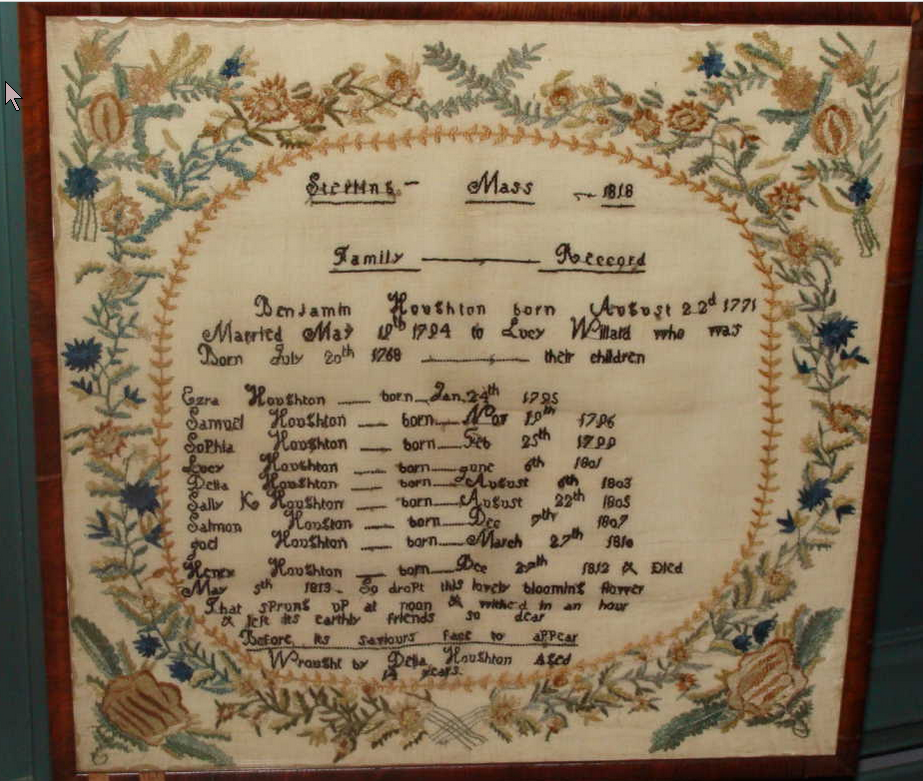 Sterling - Mass - 1818
Family Reccord
Benjamin Houghton born August 22d 1771
Married May 1794 to Lucy Willard who was
Born July 20th 1768 their children
Ezra Houghton born Jan 24th 1795
Samuel Houghton born Nov 19th 1796
Sophia Houghton born Feb 25th 1799
Lucy Houghton born June 6th 1801
Delia Houghton born August 6th 1803
Sally K Houghton born August 22th 1805
Salmon Houghton born Dec 1807
Joel Houghton born March 27th 1810
Henry Houghton born Dec 1812 & Died
May 5th 1813 So dropt this lovely blooming flower
That sprung up at noon & withed in an hour
& left its earthly friends so dear
Before its saviours face to appear
Wrought by Delia Houghton Aged
years